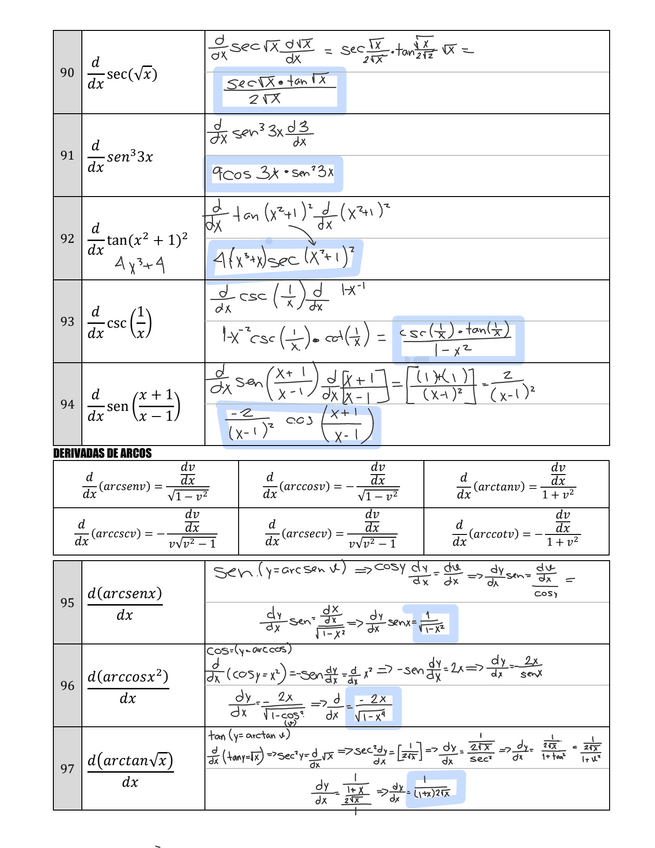 90 d/dx sec(√x)
d/dx sec√x d√x/dx = sec √x/2√x · tan √x/2√x √x =
sec√x · tan√x / 2√x
91 d/dx sen³3x
d/dx sen³3x d3/dx
9cos 3x · sen²3x
92 d/dx tan(x² + 1)²
4x³+4
d/dx tan (x²+1)² d/dx (x²+1)²
4(x³+x)sec (x²+1)²
93 d/dx csc (1/x)
d/dx csc (1/x) d/dx 1-x⁻¹
1-x⁻² csc (1/x) · cot (1/x) = csc(1/x) · tan(1/x) / 1-x²
94 d/dx sen ((x + 1)/(x − 1))
d/dx sen ((x+1)/(x-1)) d/dx [(x+1)/(x-1)] = [(1)+(1) / (x-1)²] = 2/(x-1)²
-2/(x-1)² cos ((x+1)/(x-1))
DERIVADAS DE ARCOS
d/dx (arcsenv) = (dv/dx)/√(1 − v²)
d/dx (arccosv) = − (dv/dx)/√(1 − v²)
d/dx (arctanv) = (dv/dx)/(1 + v²)
d/dx (arccscv) = − (dv/dx)/(v√(v² − 1))
d/dx (arcsecv) = (dv/dx)/(v√(v² − 1))
d/dx (arccotv) = − (dv/dx)/(1 + v²)
95 d(arcsenx)/dx
sen (y=arcsen v) ⇒ cosy dy/dx = dv/dx ⇒ dy/dx sen = (dv/dx)/cosy =
dy/dx sen = (dx/dx)/√(1-x²) ⇒ dy/dx senx = 1/√(1-x²)
96 d(arccosx²)/dx
cos=(y=arccos)
d/dx (cosy=x²) = -sen dy/dx = d/dx x² ⇒ -sen dy/dx = 2x ⇒ dy/dx = -2x/senx
dy/dx = -2x/√(1-cos²(v)) ⇒ d/dx = -2x/√(1-x⁴)
97 d(arctan√x)/dx
tan (y=arctan v)
d/dx (tany=√x) ⇒ sec²y = d/dx √x ⇒ sec² dy/dx = [1/2√x] ⇒ dy/dx = (1/2√x)/sec² ⇒ dy/dx = (1/2√x)/(1+tan²) = (1/2√x)/(1+v²)
dy/dx = 1/((1+x)/(2√x)/1) ⇒ dy/dx = 1/((1+x)2√x)